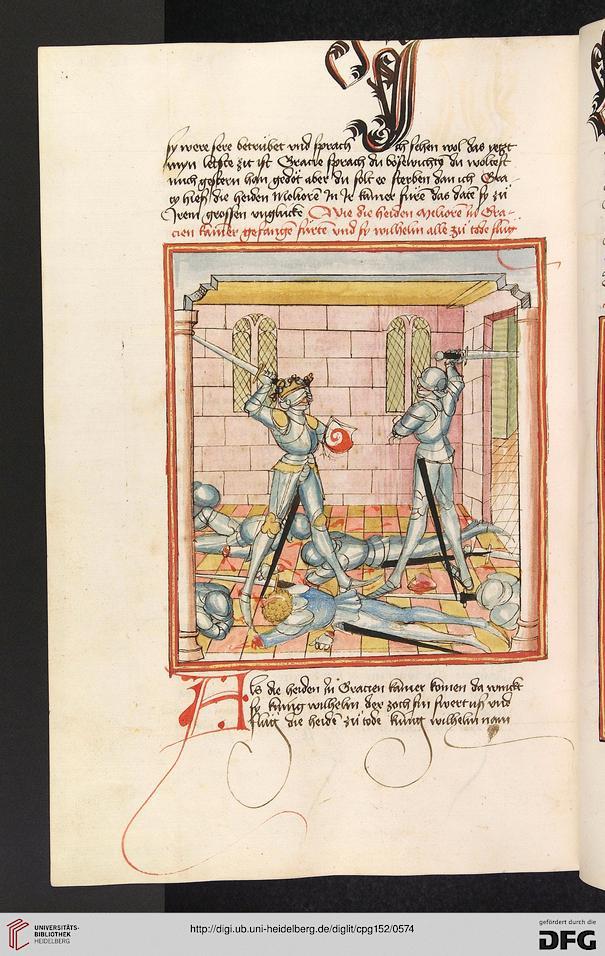 sy were sere betrübet vnd sprach Ich sehen wol das yetzt
myn letste zit ist Gracie sprach du bößwicht du woltest
mich gestern han gedöt aber du solt ee sterben dan ich Gra-
cy hieß die heiden Meliore in Ir kamer füre das date sy zü
Irem grossen vnglücke Wie die heiden Meliore in Gra-
cien kamer gefangē fürtē vnd sy wilhelm alle zü tode slüg
Als die heiden In Gracien kamer komen da
sy künig wilhelm der zoch sin swert uß vnd
slüg die heidē zü tode künig wilhelm nam
UNIVERSITÄTS-
BIBLIOTHEK
HEIDELBERG
http://digi.ub.uni-heidelberg.de/diglit/cpg152/0574
gefördert durch die
DFG